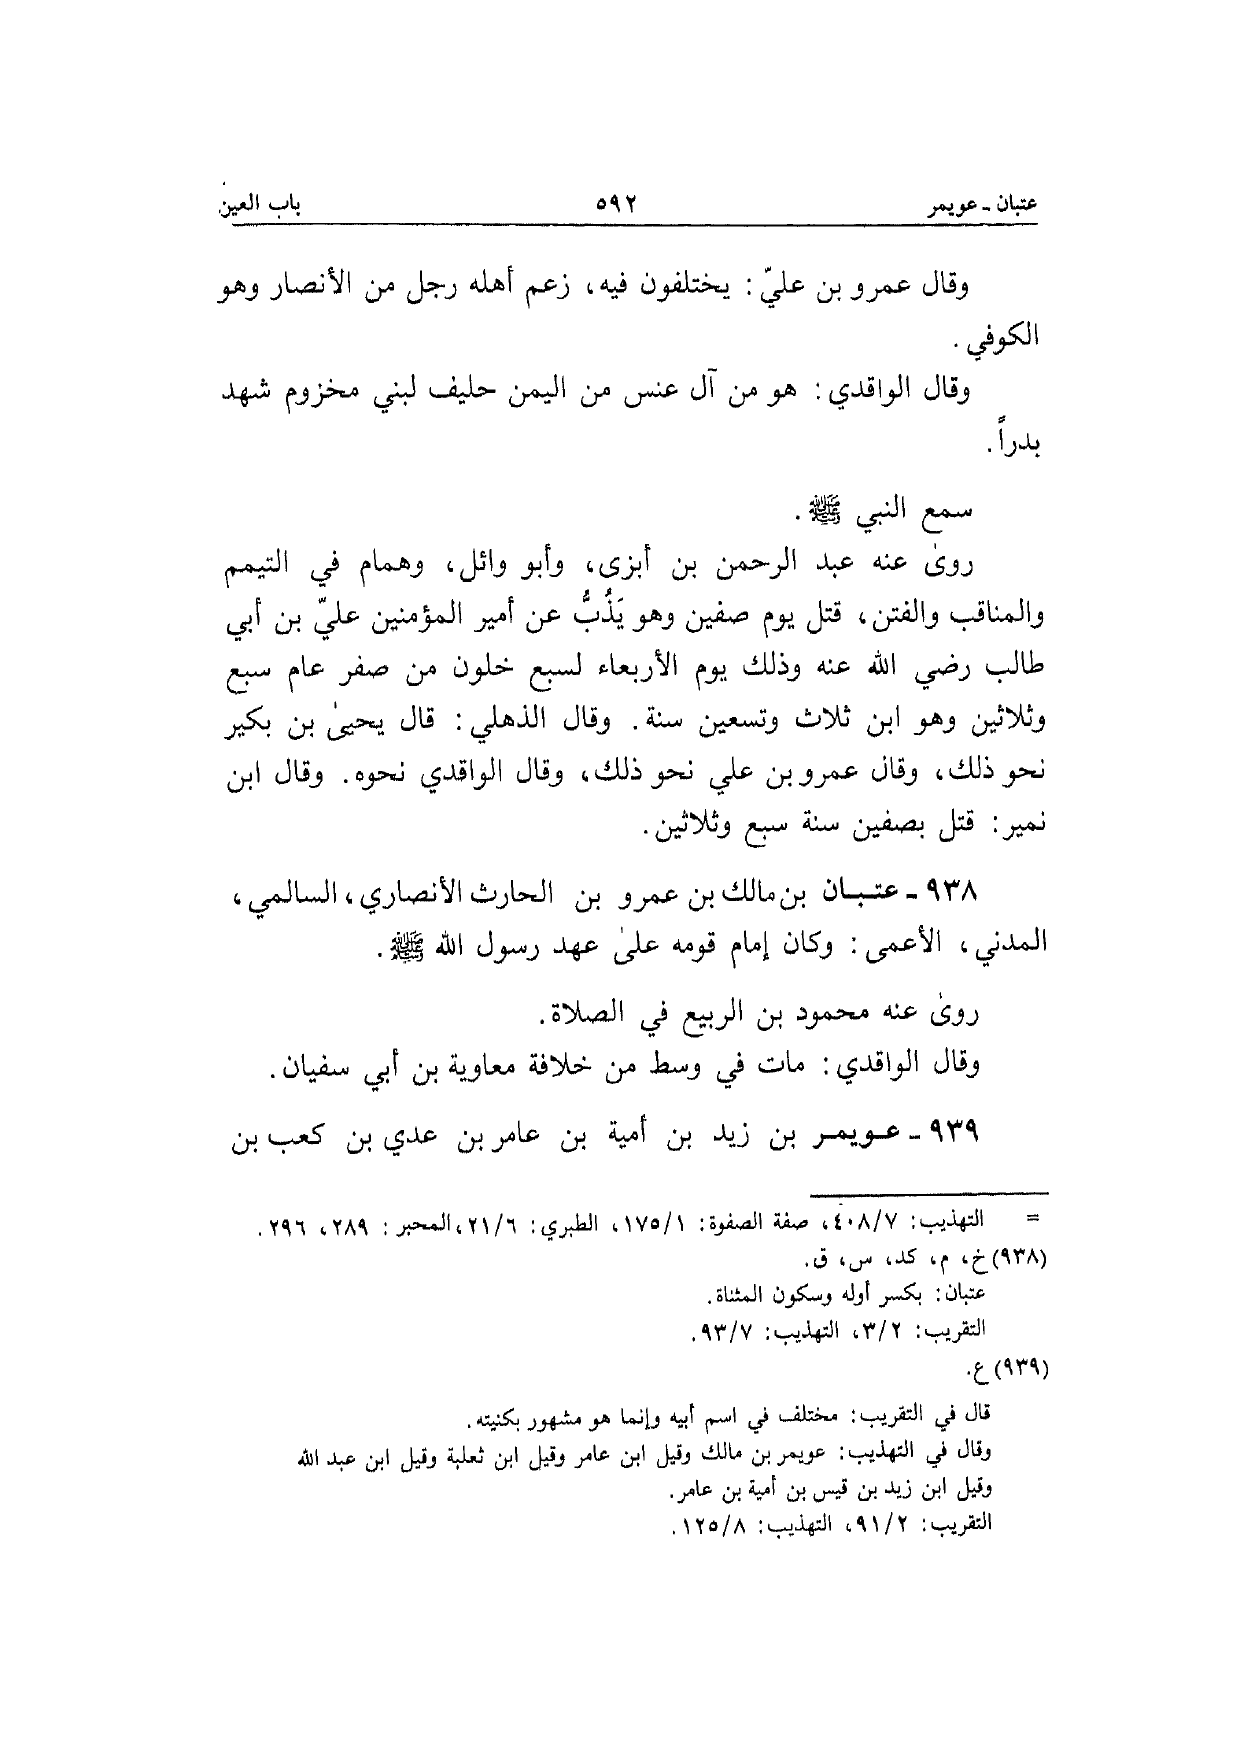 عتبان ـ عويمر ٥٩٢ باب العين
وقال عمرو بن عليّ: يختلفون فيه، زعم أهله رجل من الأنصار وهو
الكوفي.
وقال الواقدي: هو من آل عنس من اليمن حليف لبني مخزوم شهد
بدراً.
سمع النبي ﷺ.
روىٰ عنه عبد الرحمن بن أبزى، وأبو وائل، وهمام في التيمم
والمناقب والفتن، قتل يوم صفين وهو يَذُبُّ عن أمير المؤمنين عليّ بن أبي
طالب رضي الله عنه وذلك يوم الأربعاء لسبع خلون من صفر عام سبع
وثلاثين وهو ابن ثلاث وتسعين سنة. وقال الذهلي: قال يحيىٰ بن بكير
نحو ذلك، وقال عمرو بن علي نحو ذلك، وقال الواقدي نحوه. وقال ابن
نمير: قتل بصفين سنة سبع وثلاثين.
٩٣٨ ـ عتبان بن مالك بن عمرو بن الحارث الأنصاري، السالمي،
المدني، الأعمى: وكان إمام قومه علىٰ عهد رسول الله ﷺ.
روىٰ عنه محمود بن الربيع في الصلاة.
وقال الواقدي: مات في وسط من خلافة معاوية بن أبي سفيان.
٩٣٩ ـ عويمر بن زيد بن أمية بن عامر بن عدي بن كعب بن
= التهذيب: ٤٠٨/٧، صفة الصفوة: ١٧٥/١، الطبري: ٢١/٦، المحبر: ٢٨٩، ٢٩٦.
(٩٣٨) خ، م، كد، س، ق.
عتبان: بكسر أوله وسكون المثناة.
التقريب: ٣/٢، التهذيب: ٩٣/٧.
(٩٣٩) ع.
قال في التقريب: مختلف في اسم أبيه وإنما هو مشهور بكنيته.
وقال في التهذيب: عويمر بن مالك وقيل ابن عامر وقيل ابن ثعلبة وقيل ابن عبد الله
وقيل ابن زيد بن قيس بن أمية بن عامر.
التقريب: ٩١/٢، التهذيب: ١٢٥/٨.